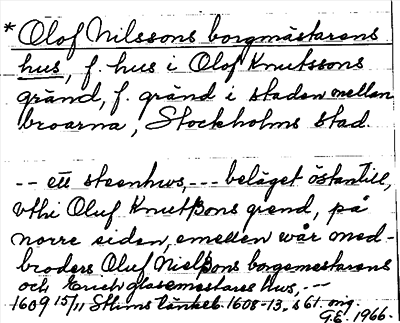 * Olof Nilssons borgmästarens
hus, f. hus i Olof Knutssons
gränd, f. gränd i staden mellan
broarna, Stockholms stad.
-- ett steenhus, --- beläget östantill,
vthi Oluf Knutßons grend, på
norre siden, emellen wår med-
broders Oluf Nielßons borgemestarens
och Erich glasemestares hus, --
1609 15/11 Sthms tänkeb 1608-13, s 61. orig.
G.E. 1966.